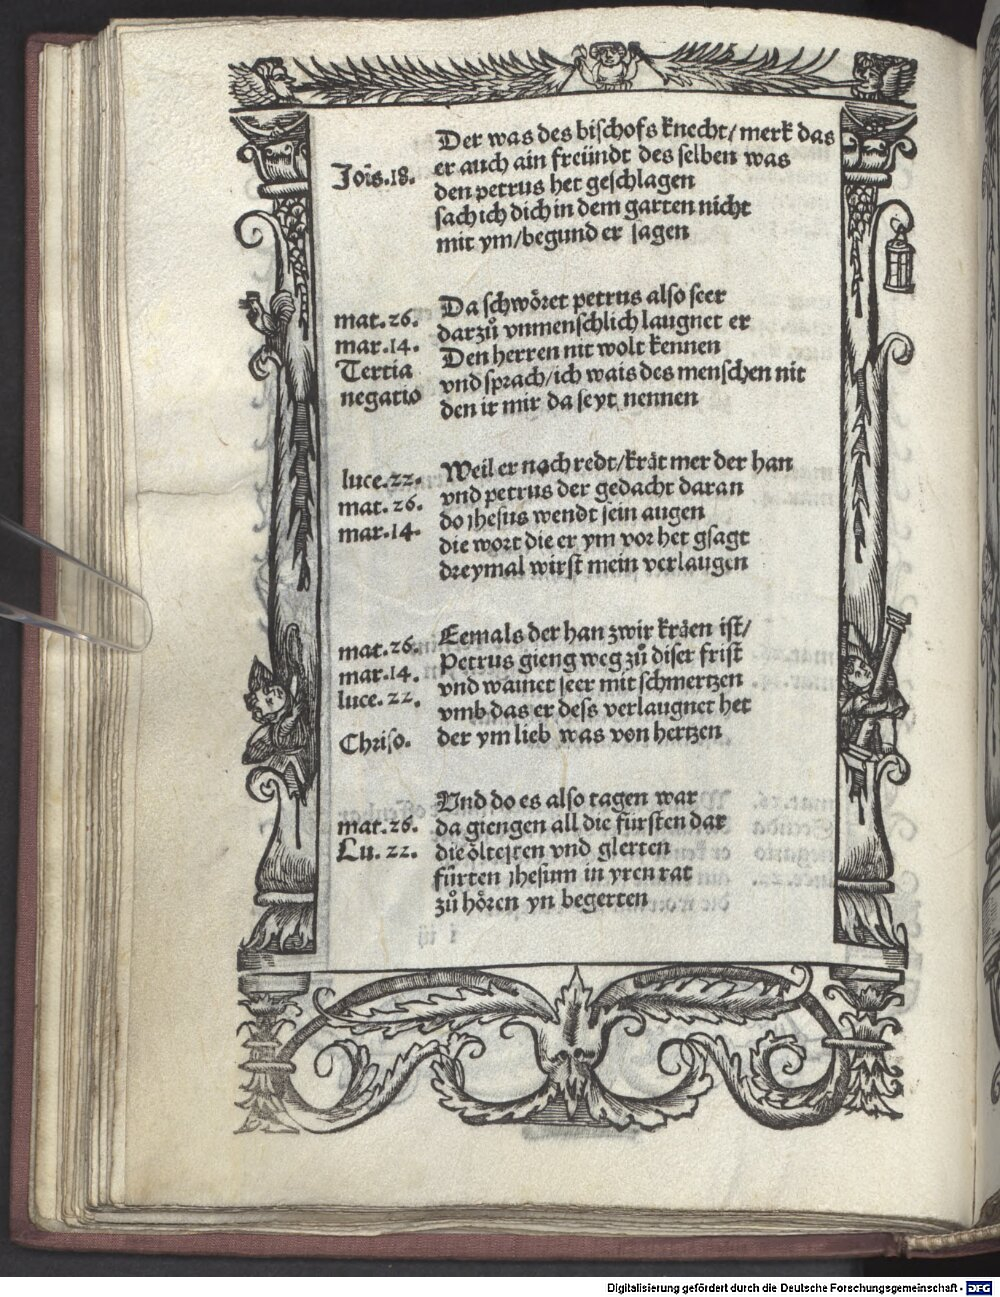 Der was des bischofs knecht/merk das
Jois.18. er auch ain freündt des selben was
den petrus het geschlagen
sach ich dich in dem garten nicht
mit ym/begund er sagen
Da schwöret petrus also seer
mat.26. darzuͦ vnmenschlich laugnet er
mar.14. Den herren nit wolt kennen
Tertia vnd sprach/ich wais des menschen nit
negatio den ir mir da seyt nennen
luce.22. Weil er noch redt/krät mer der han
mat.26. vnd petrus der gedacht daran
mar.14. do jhesus wendt sein augen
die wort die er ym vor het gsagt
dreymal wirst mein verlaugen
mat.26. Eemals der han zwir kräen ist/
mar.14. Petrus gieng weg zuͦ diser frist
luce.22. vnd wainet seer mit schmertzen
vmb das er dess verlaugnet het
Chriso. der ym lieb was von hertzen
Vnd do es also tagen war
mat.26. da giengen all die fürsten dar
Lu.22. die öltesten vnd glerten
fürten jhesum in yren rat
zuͦ hören yn begerten
Digitalisierung gefördert durch die Deutsche Forschungsgemeinschaft - DFG